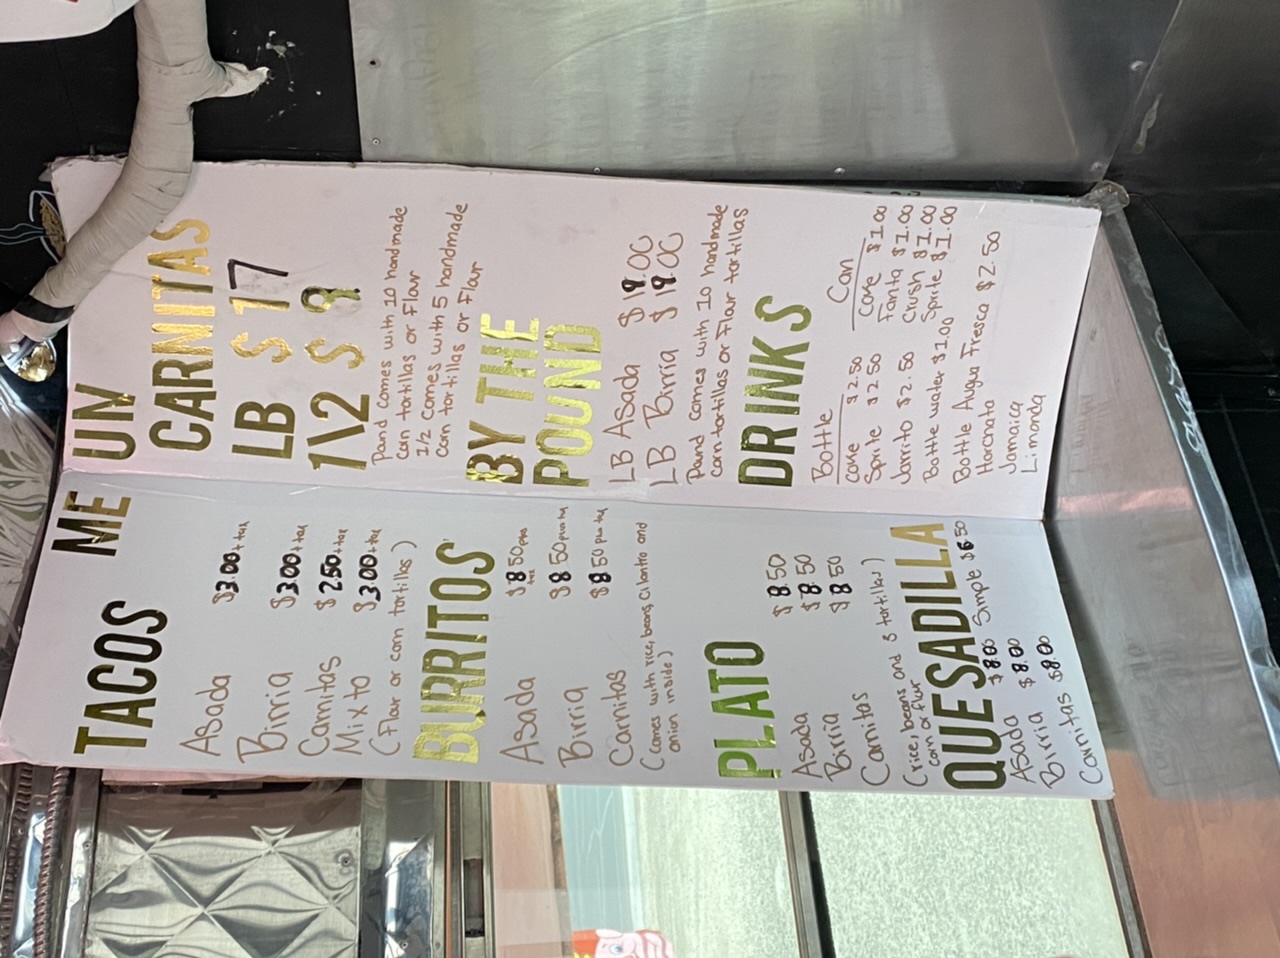 ME UN
TACOS
Asada $3.00 + tax
Birria $3.00 + tax
Carnitas $2.50 + tax
Mixto $3.00 + tax
(Flar or corn tortillas)
BURRITOS
Asada $8.50 plus tax
Birria $8.50 plus tax
Carnitas $8.50 plus tax
(Comes with rice, beans, cilantro and
onion inside)
PLATO
Asada $8.50
Birria $8.50
Carnitas $8.50
(rice, beans and 3 tortillas)
corn or flur
QUESADILLA
Asada $8.00 Simple $6.50
Birria $8.00
Carnitas $8.00
CARNITAS
LB $17
1\2 $9
Pound comes with 10 handmade
corn tortillas or Flavr
1/2 comes with 5 handmade
corn tortillas or Flavr
BY THE
POUND
LB Asada $19.00
LB Birria $19.00
Pound comes with 10 handmade
corn tortillas or Flavr tortillas
DRINKS
Bottle
Coke $2.50
Sprite $2.50
Jarrito $2.50
Bottle water $1.00
Can
Coke $1.00
Fanta $1.00
Crush $1.00
Sprite $1.00
Bottle Augua Fresca $2.50
Horchata
Jamaica
Limonda